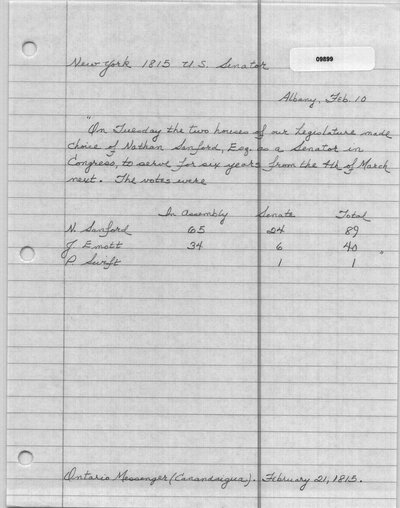 New York 1815 U.S. Senator
09899
Albany, Feb. 10
"On Tuesday the two houses of our Legislature made
choice of Nathan Sanford, Esq. as a Senator in
Congress, to serve for six years from the 4th of March
next. The votes were
In Assembly Senate Total
N. Sanford 65 24 89
J. Emott 34 6 40 "
P. Swift 1 1
Ontario Messenger (Canandaigua). February 21, 1815.